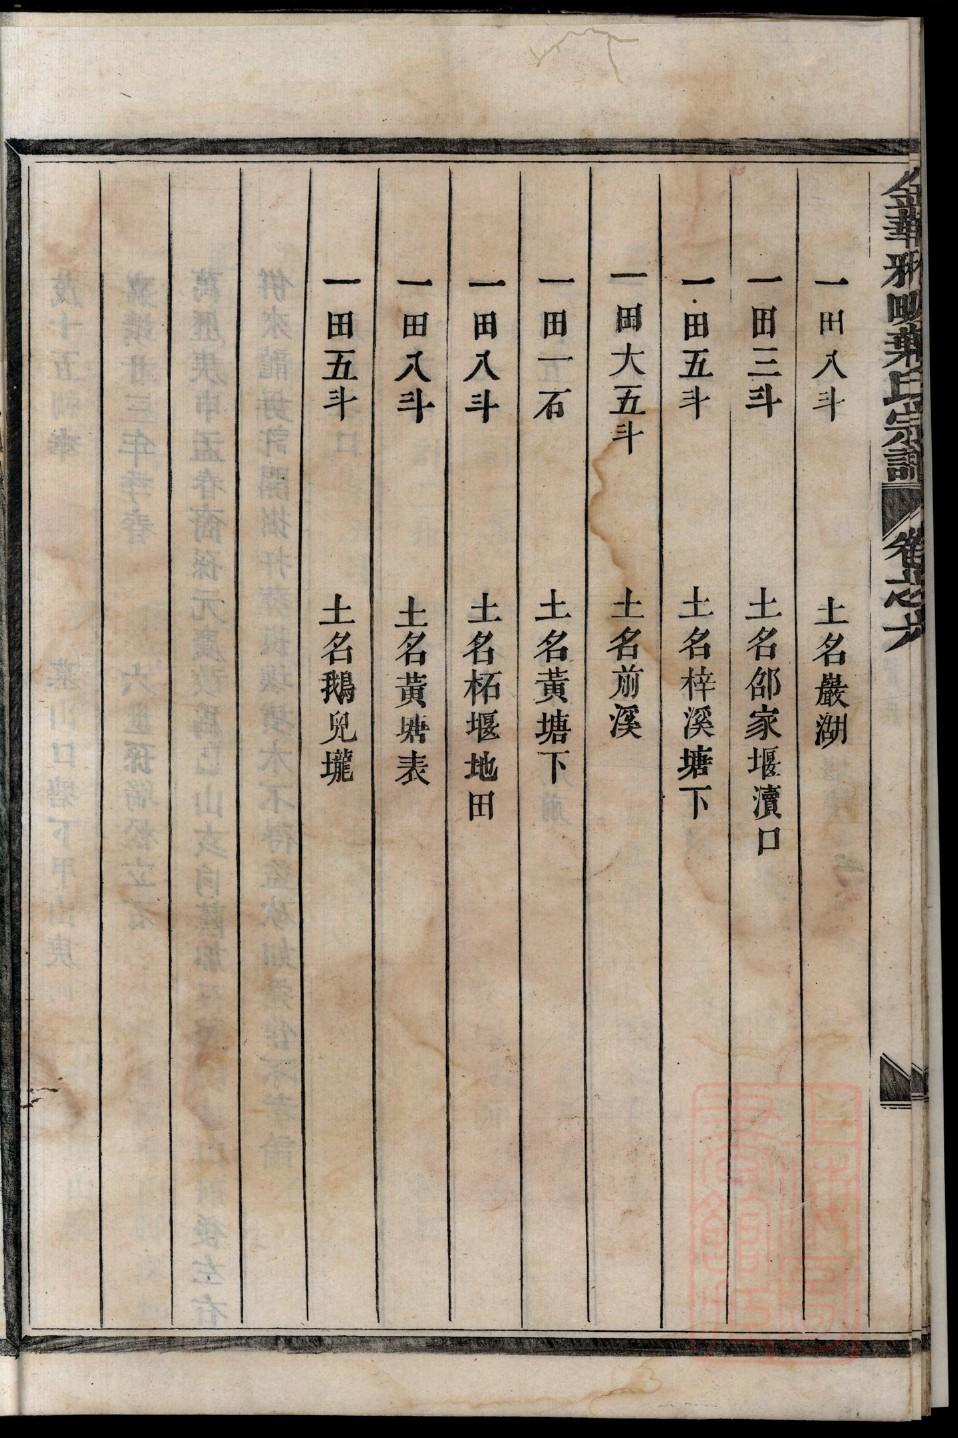 金華雅畈葉氏宗譜 卷之六
一田八斗 土名嚴湖
一田三斗 土名郃家堰瀆口
一田五斗 土名梓溪塘下
一田大五斗 土名前溪
一田一石 土名黃塘下
一田八斗 土名柘堰地田
一田八斗 土名黃塘表
一田五斗 土名鵝兒壠